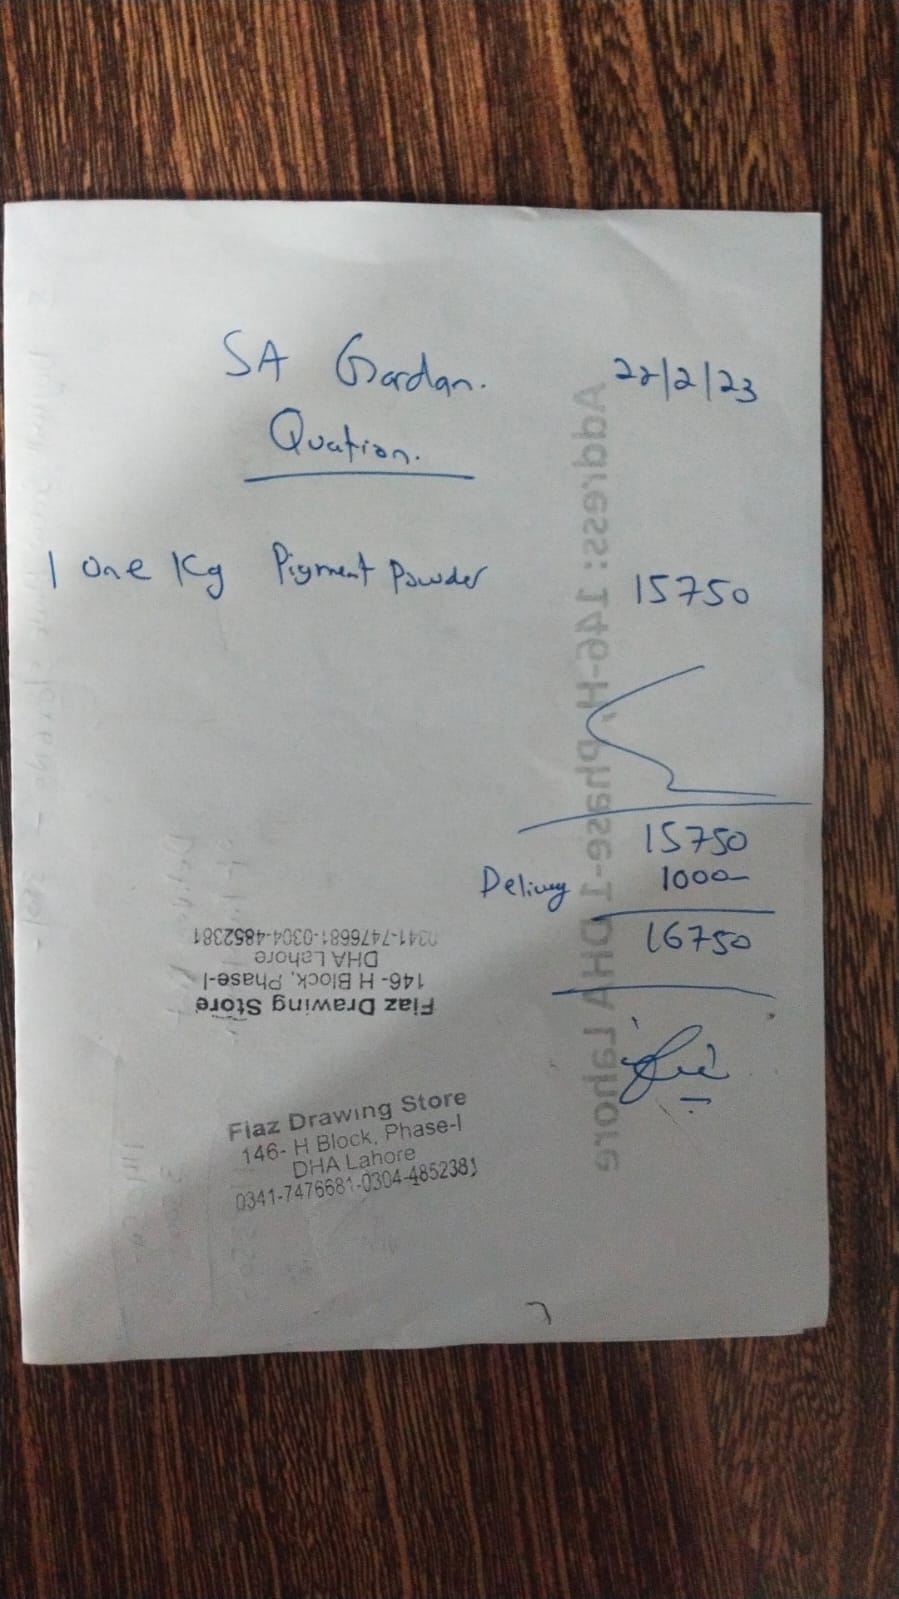 SA Gardan. 22/2/23
Quation.
1 One Kg Pigment Powder 15750
15750
Delivey 1000
16750
Fiaz Drawing Store
146- H Block, Phase-I
DHA Lahore
0341-7476681-0304-4852381
Fiaz Drawing Store
146- H Block, Phase-I
DHA Lahore
0341-7476681-0304-4852381
Address: 146-H, Phase-1 DHA Lahore